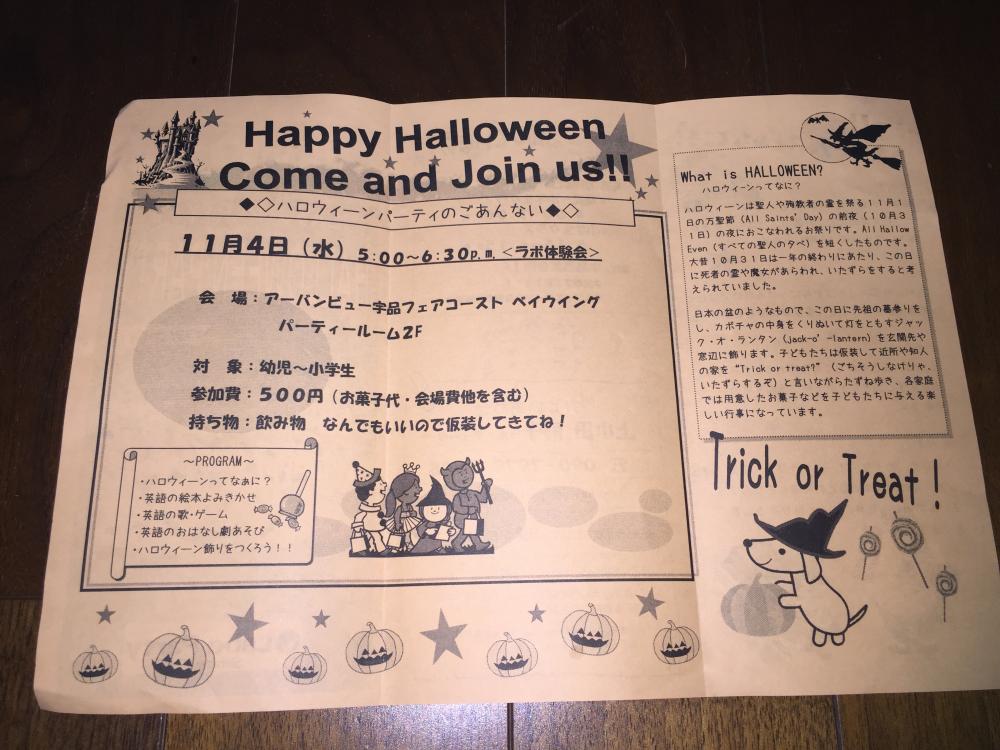 Happy Halloween
Come and Join us!!
◆◇ハロウィーンパーティのごあんない◆◇
11月4日（水）5:00～6:30p.m.＜ラボ体験会＞
会 場：アーバンビュー宇品フェアコースト ベイウイング
パーティールーム2F
対 象：幼児～小学生
参加費：500円（お菓子代・会場費他を含む）
持ち物：飲み物 なんでもいいので仮装してきてね！
～PROGRAM～
・ハロウィーンってなぁに？
・英語の絵本よみきかせ
・英語の歌・ゲーム
・英語のおはなし劇あそび
・ハロウィーン飾りをつくろう！！
What is HALLOWEEN?
ハロウィーンってなに？
ハロウィーンは聖人や殉教者の霊を祭る11月1
日の万聖節（All Saints' Day）の前夜（10月3
1日）の夜におこなわれるお祭りです。All Hallow
Even（すべての聖人の夕べ）を短くしたものです。
大昔10月31日は一年の終わりにあたり、この日
に死者の霊や魔女があらわれ、いたずらをすると考
えられていました。
日本の盆のようなもので、この日に先祖の墓参りを
し、カボチャの中身をくりぬいて灯をともすジャッ
ク・オ・ランタン（jack-o'-lantern）を玄関先や
窓辺に飾ります。子どもたちは仮装して近所や知人
の家を“Trick or treat?”（ごちそうしなけりゃ、
いたずらするぞ）と言いながらたずね歩き、各家庭
では用意したお菓子などを子どもたちに与える楽
しい行事になっています。
Trick or Treat!